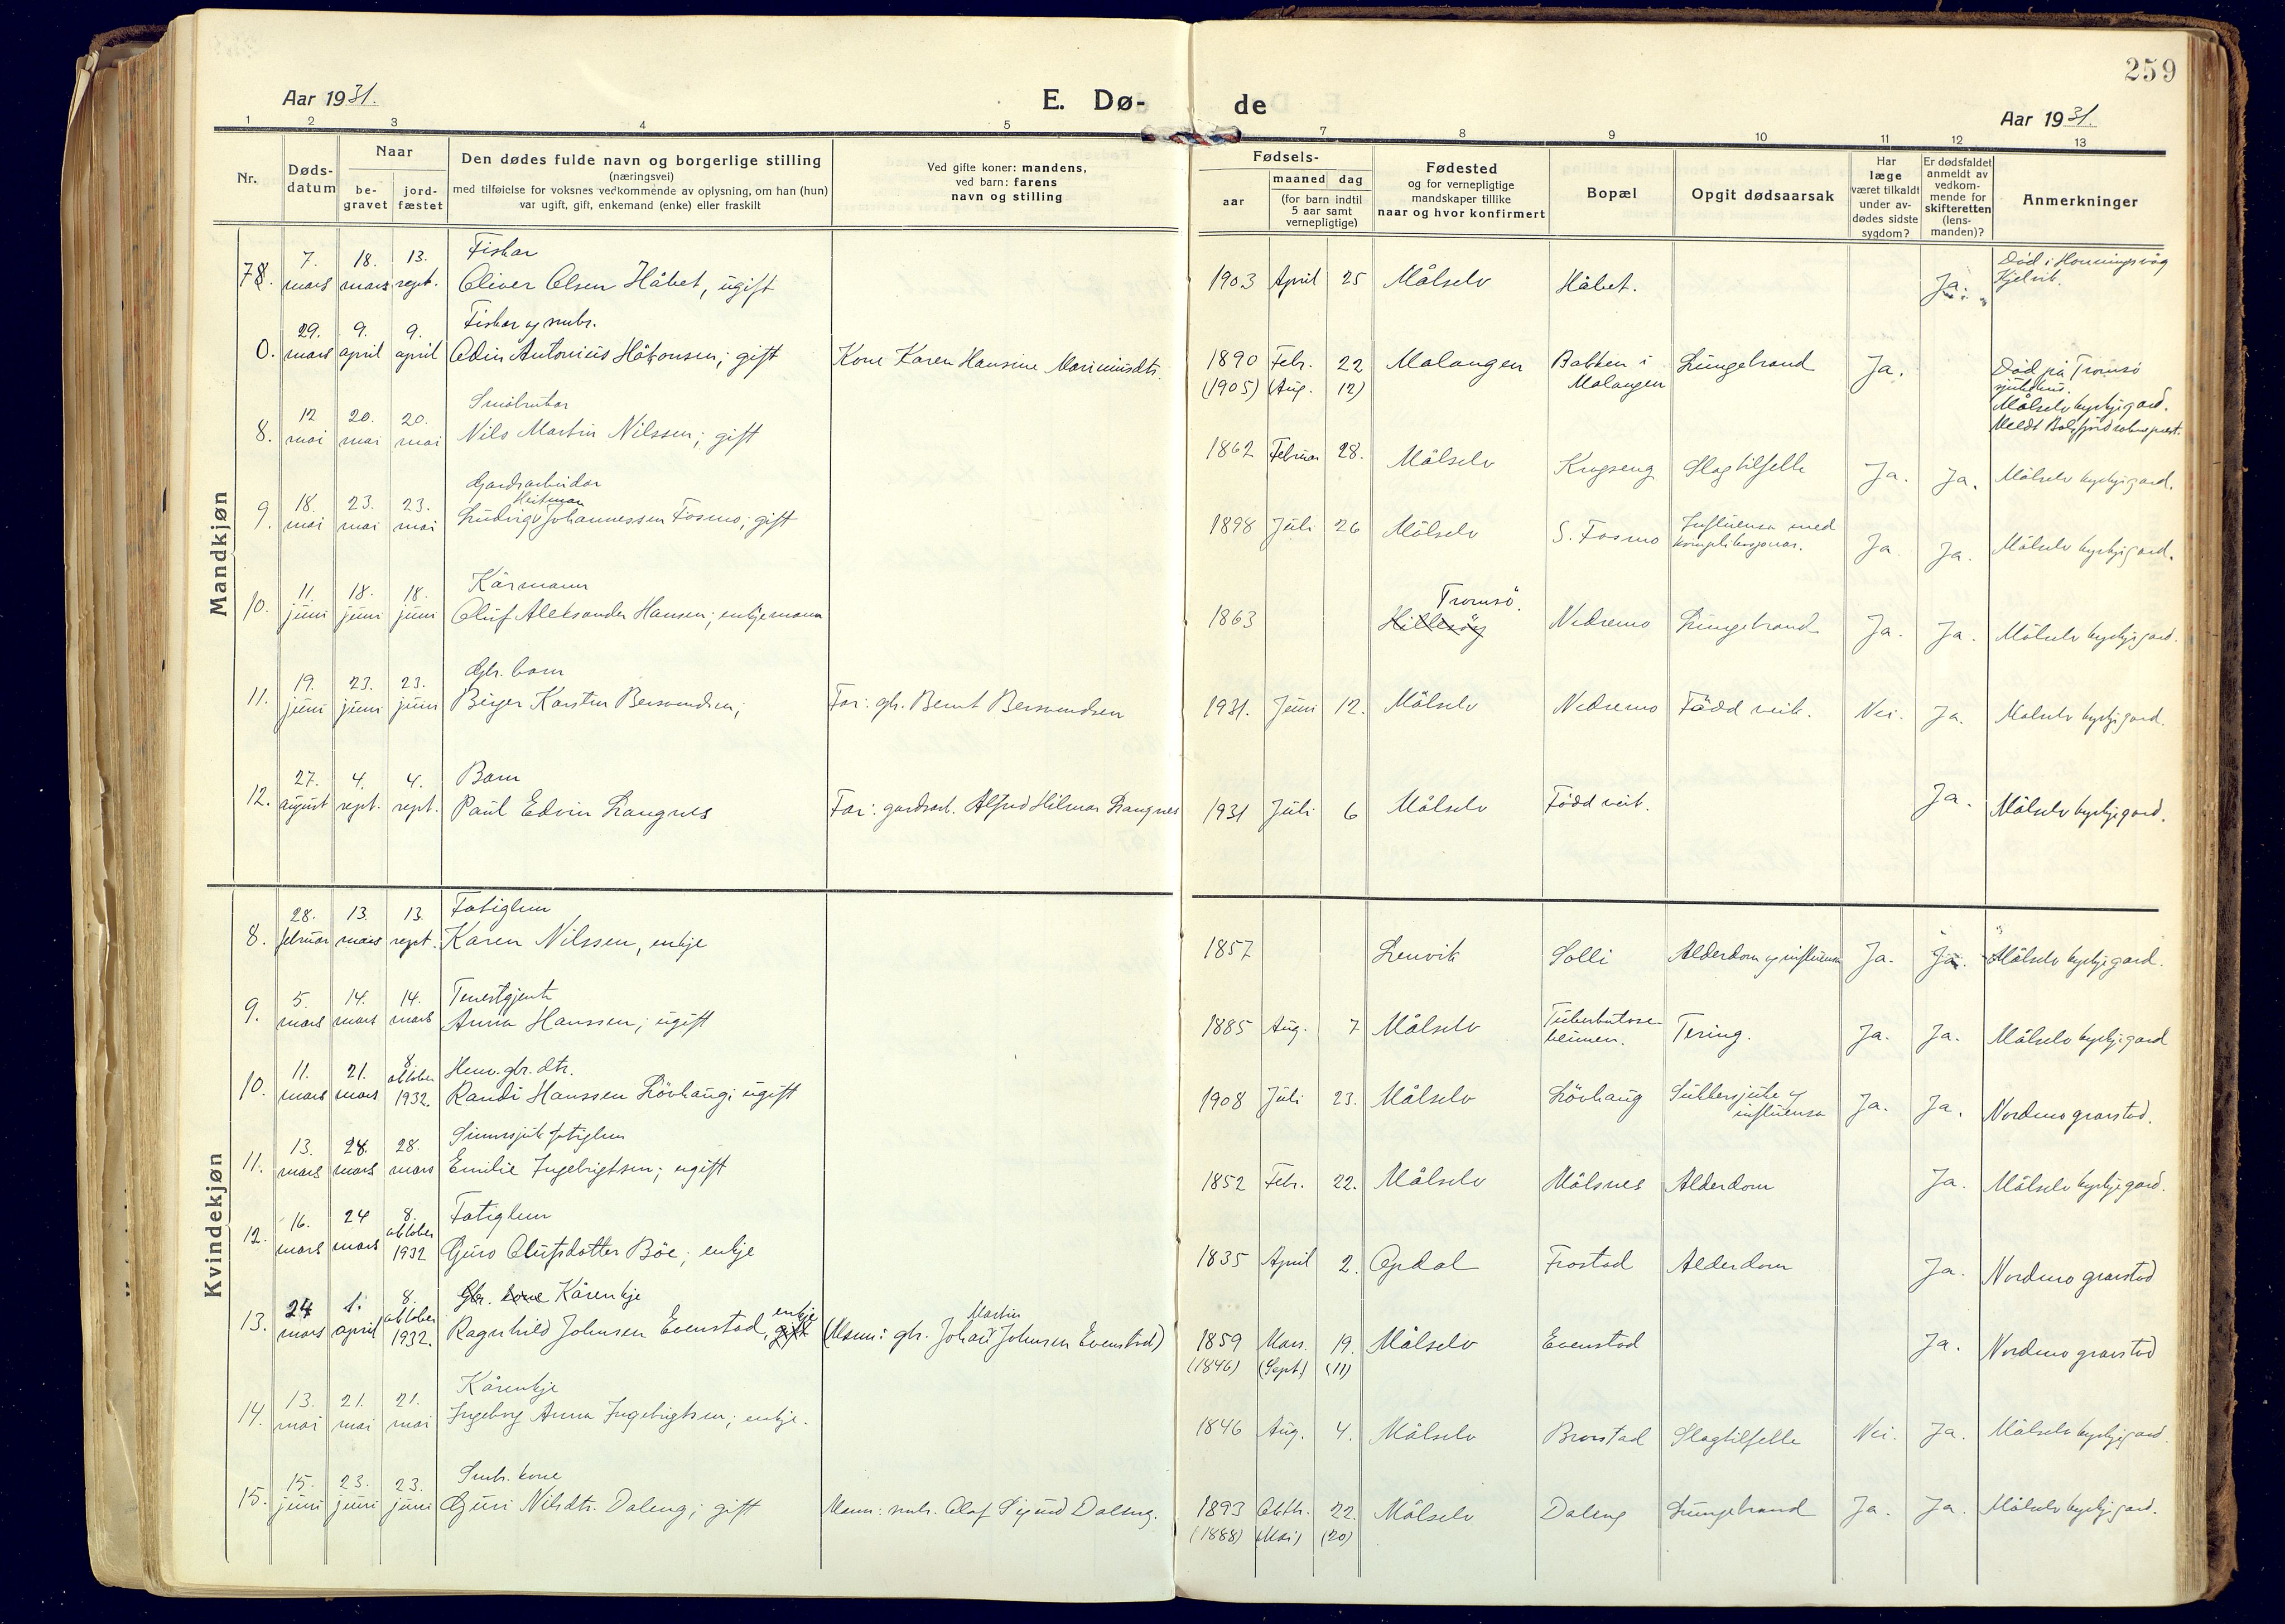 259
Aar 1931.
E. Dø-
de
Aar 1931.
1 2 3 4 5 7 8 9 10 11 12 13
Nr.
Døds-
datum
Naar
be-
gravet
jord-
fæstet
Den dødes fulde navn og borgerlige stilling
(næringsvei)
med tilføielse for voksnes vedkommende av oplysning, om han (hun)
var ugift, gift, enkemand (enke) eller fraskilt
Ved gifte koner: mandens,
ved barn: farens
navn og stilling
Fødsels-
aar
maaned dag
(for barn indtil
5 aar samt
vernepligtige)
Fødested
og for vernepligtige
mandskaper tillike
naar og hvor konfirmert
Bopæl
Opgit dødsaarsak
Har
læge
været tilkaldt
under av-
dødes sidste
sygdom?
Er dødsfaldet
anmeldt av
vedkom-
mende for
skifteretten
(lens-
manden)?
Anmerkninger
Mandkjøn
7. 18. 13. Fiskar Død i Honningsvåg
mars mars sept. Oliver Olsen Håbet, ugift 1903 April 25 Målselv Håbet. Ja. Kjelvik.
29. 9. 9. Fiskar og smbr.
0. mars april april Odin Antonius Håkonsen; gift Kone Karen Hansine Marimusdtr. 1890 Febr. 22 Malangen Bakken i Lungebrand Ja. Død på Tromsö
(1905) (Aug. 12) Malangen sjukehus.
Målselv kyrkjegard.
12 20. 20. Småbrukar
8. mai mai mai Nils Martin Nilssen; gift 1862 Februar 28. Målselv Krogseng Slagtilfelle Ja. Ja. Målselv kyrkjegard.
18. 23. 23. Gardsarbeidar
Heitman
9. mai mai mai Ludvig Johannessen Fosmo; gift 1898 Juli 26 Målselv S. Fosmo Influensa med Ja Ja. Målselv kyrkjegard.
komplikasjonar.
11. 18. 18. Kårmann Tromsö.
10. juni juni juni Oluf Aleksander Hansen; enkjemann 1863 Hillesöy Nedremo Lungebrand Ja. Ja. Målselv kyrkjegard.
19. 23. 23. Gbr. barn
11. juni juni juni Birger Karsten Bersvendsen; Far: gbr. Bernt Bersvendsen 1931. Juni 12. Målselv Nedremo Född veik. Nei. Ja. Målselv kyrkjegard.
27. 4. 4. Barn
12. august sept. sept. Paul Edvin Langnes Far: gardsarb. Alfred Hilmar Langnes 1931 Juli 6 Målselv Född veik. Ja. Målselv kyrkjegard.
Kvindekjøn
28. 13. 13. Fatiglem
8. februar mars sept. Karen Nilssen, enkje 1857 Lenvik Solli Alderdom og influensa Ja. Ja. Målselv kyrkjegard.
5. 14. 14. Tenestgjente
9. mars mars mars Anna Hanssen; ugift 1885 Aug. 7 Målselv Tuberkulose- Tering. Ja. Ja. Målselv kyrkjegard
heimen.
11. 21. 8. Hemv. gbr. dtr.
oktober
10. mars mars 1932. Randi Hanssen Lövhaug; ugift 1908 Juli 23. Målselv Lövhaug Sukkersjuke og Ja. Ja. Nordmo gravstad.
influensa
13. 28. 28. Sinnssjuk fatiglem
11. mars mars mars Emilie Ingebrigtsen; ugift 1852 Febr. 22. Målselv Målsnes Alderdom Ja. Målselv kyrkjegard.
16. 24 8. Fatiglem
oktober
12. mars mars 1932 Guro Olufsdotter Böe; enkje 1835 April 2. Opdal Frostad Alderdom Ja. Nordmo gravstad
24 1. 8. Gbr. kone Kårenkje
oktober enkje Martin
13. mars april 1932. Ragnhild Johnsen Evenstad, gift (Mann: gbr. Johan Johnsen Evenstad) 1859 Mars. 19. Målselv Evenstad Ja. Nordmo gravstad
(1846) (Sept) (11)
13. 21. 21. Kårenkje
14. mai mai mai Ingeborg Anna Ingebrigtsen; enkje. 1846 Aug. 4. Målselv Brorstad Slagtilfelle Nei. Ja. Målselv kyrkjegard.
15. 23. 23. Smbr. kone
15. juni juni juni Guri Nilsdtr. Daleng; gift Mann: smbr. Olaf Sigurd Daleng. 1893 Oktbr. 22. Målselv Daleng Lungebrand Ja. Ja. Målselv kyrkjegard.
(1888) (Mai) (20)